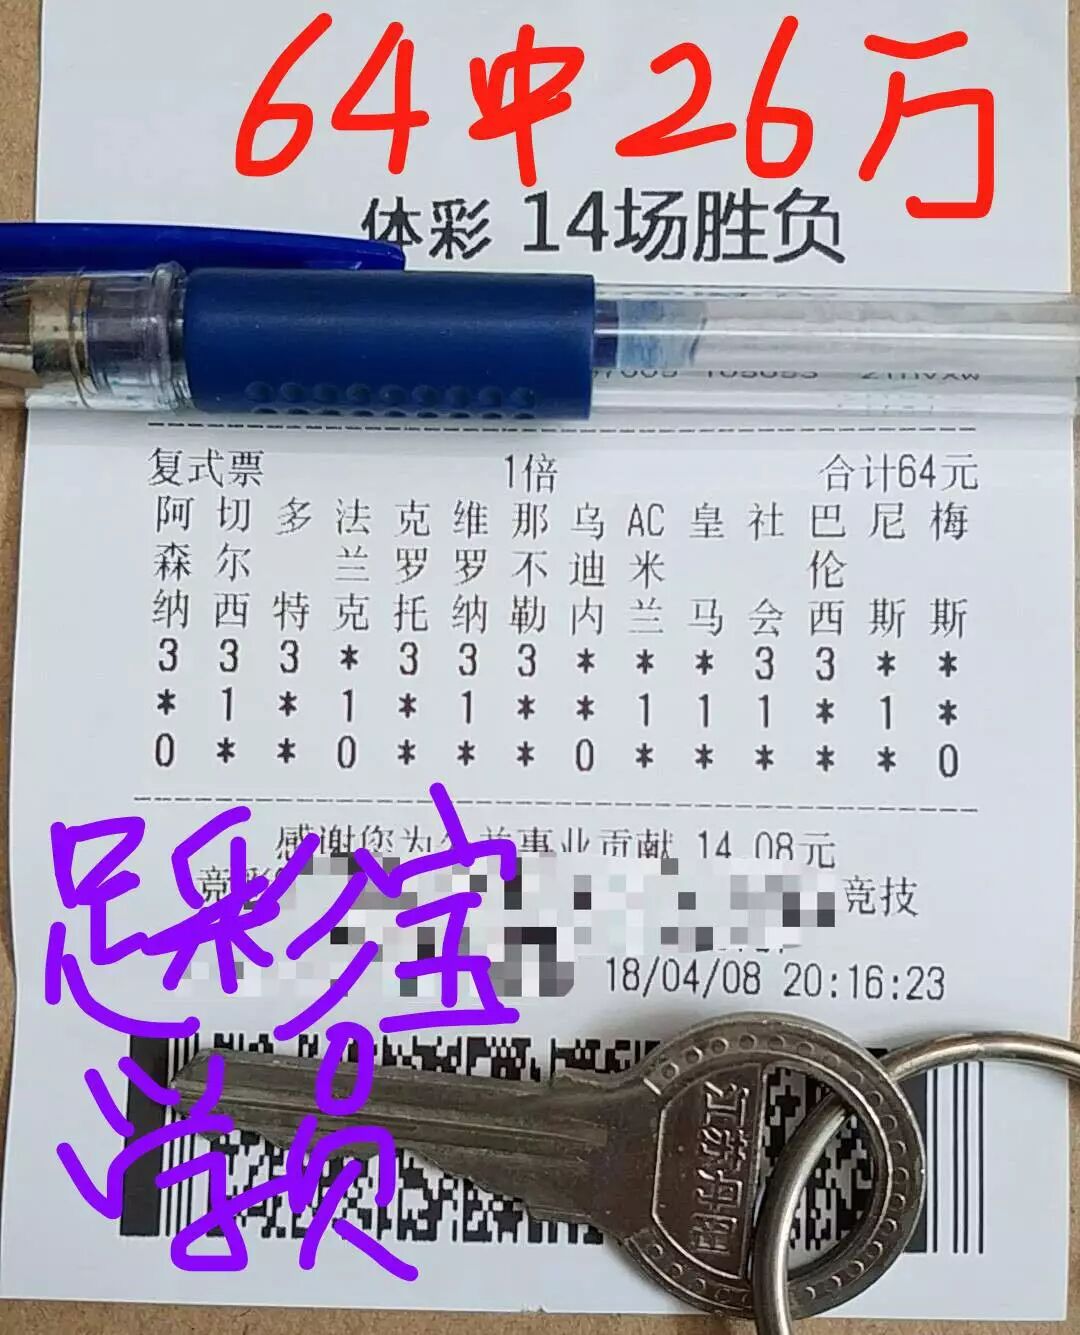 64中26万
体彩 14场胜负
复式票 1倍 合计64元
阿 切 多 法 克 维 那 乌 AC 皇 社 巴 尼 梅
森 尔 兰 罗 罗 不 迪 米 伦
纳 西 特 克 托 纳 勒 内 兰 马 会 西 斯 斯
3 3 3 * 3 3 3 * * * 3 3 * *
* 1 * 1 * 1 * * 1 1 1 * 1 *
0 * * 0 * * * 0 * * * * * 0
感谢您为公益事业贡献 14.08元
竞彩 竞技
足彩宝
18/04/08 20:16:23
学员
江苏丹阳